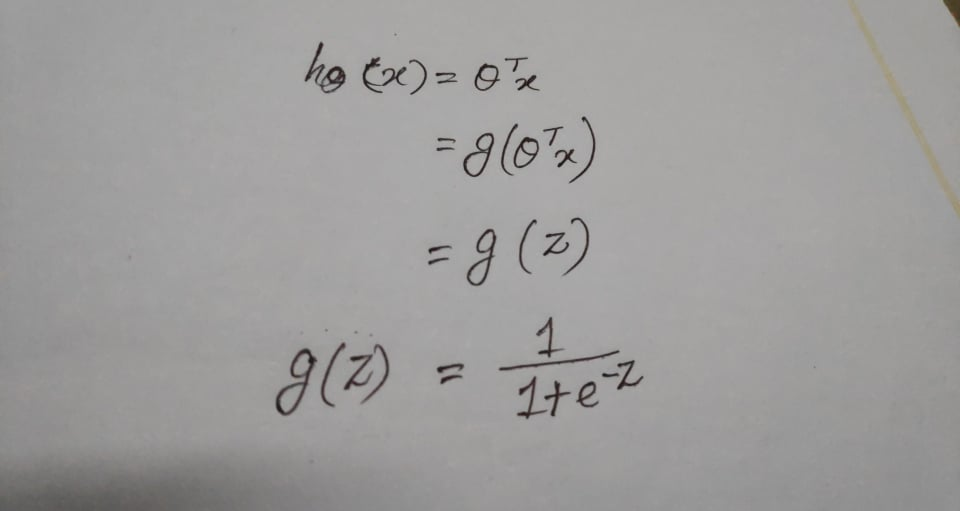 hθ(x) = θᵀx
= g(θᵀx)
= g(z)
g(z) = 1/(1+e^-z)